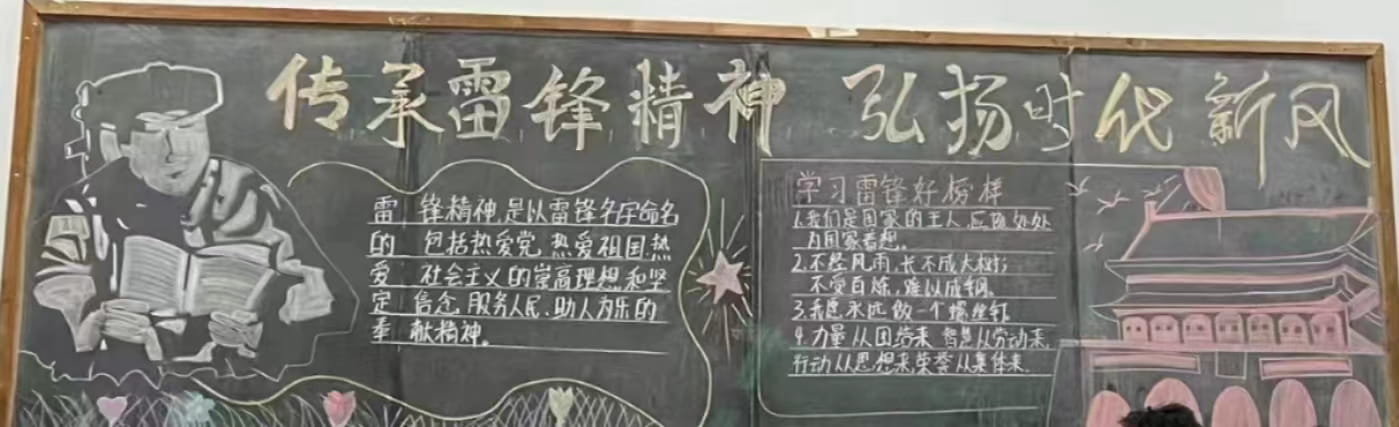 传承雷锋精神 弘扬时代新风
雷 锋精神,是以雷锋名字命名
的 包括热爱党 热爱祖国,热
爱 社会主义的崇高理想和坚
定 信念,服务人民、助人为乐的
奉 献精神。
学习雷锋好榜样
1.我们是国家的主人,应该处处
为国家着想。
2.不经风雨,长不成大树;
不受百炼,难以成钢。
3.我愿永远做一个螺丝钉
4.力量从团结来 智慧从劳动来,
行动从思想来,荣誉从集体来.